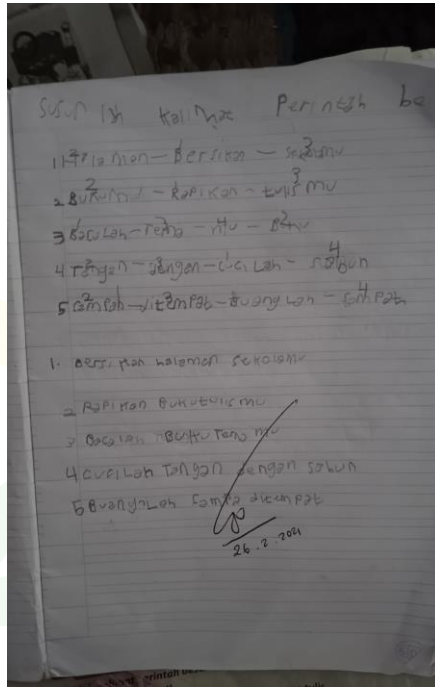 Susun lah Kalimat Perintah be
1 Halaman - Bersikan - Sekolamu
2 Bukumu - Rapikan - tulis mu
3 Bacalah - Tema - mu - Buku
4 Tangan - dengan - cucilah - sabun
5 Sampah - ditempat - Buanglah - sampah
1. Bersikan halaman sekolamu
2 Rapikan Bukutulismu
3 Bacalah Buku Tema mu
4 cucilah Tangan dengan sabun
5 Buanglah sampa ditempat
26.2.2021